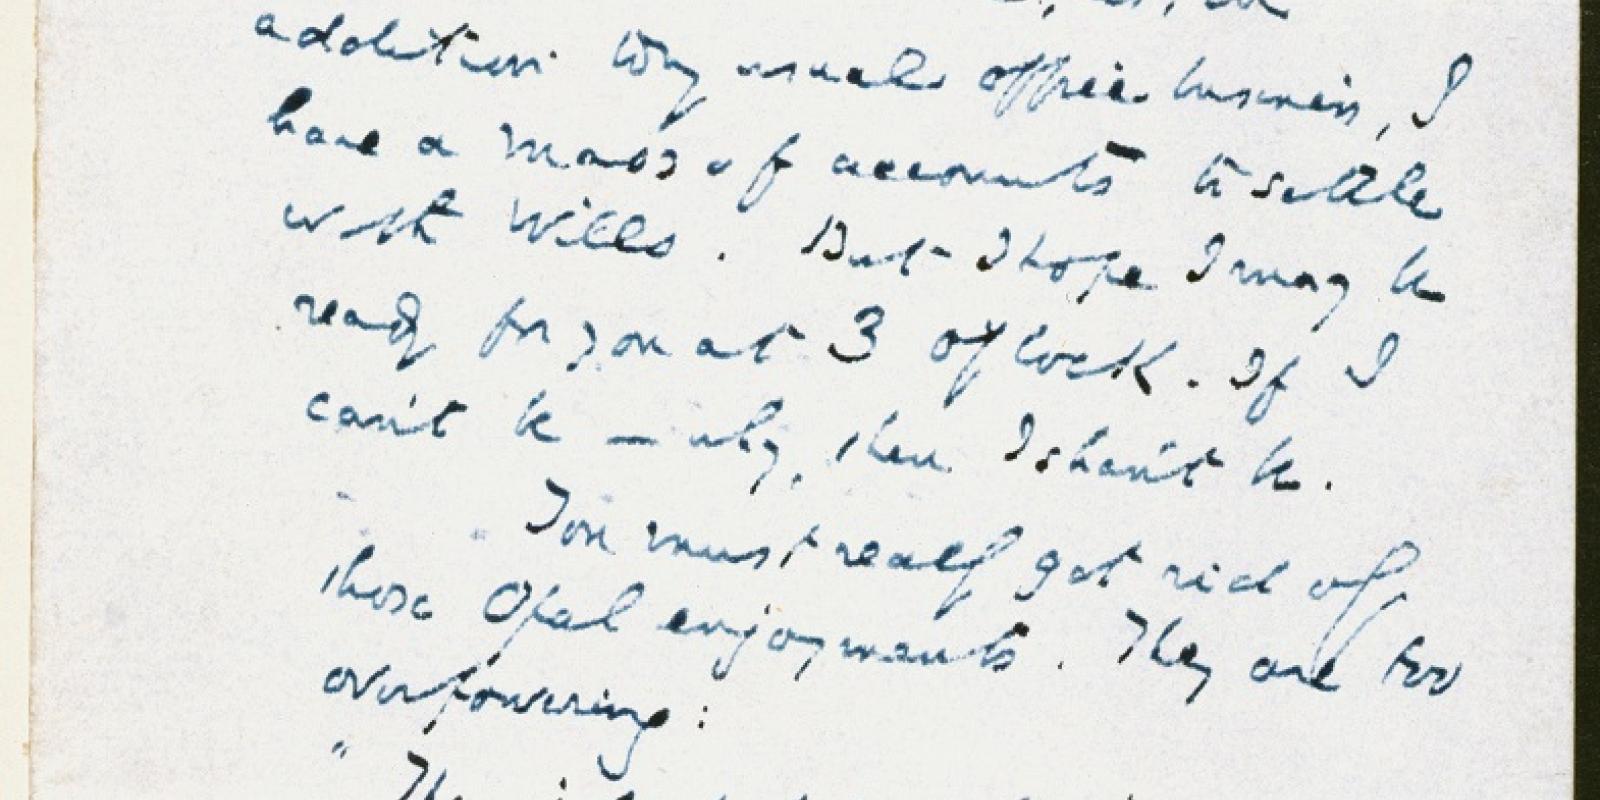 addition to my usual office business, I
have a mass of accounts to settle
with Wills. But I hope I may be
ready for you at 3 o'clock. If I
can't be — why, then I shan't be.
You must really get rid of
those Opal enjoyments. They are too
overpowering:
"